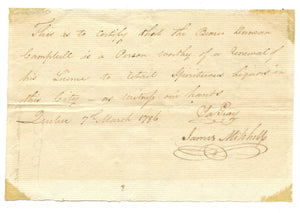 This is to certify that the Bearer Duncan
Campbell is a Person worthy of a Renewal of
his License to Retail Spirituous Liquors in
this City - as witness our hands
Quebec 7th March 1786
James Mitchell